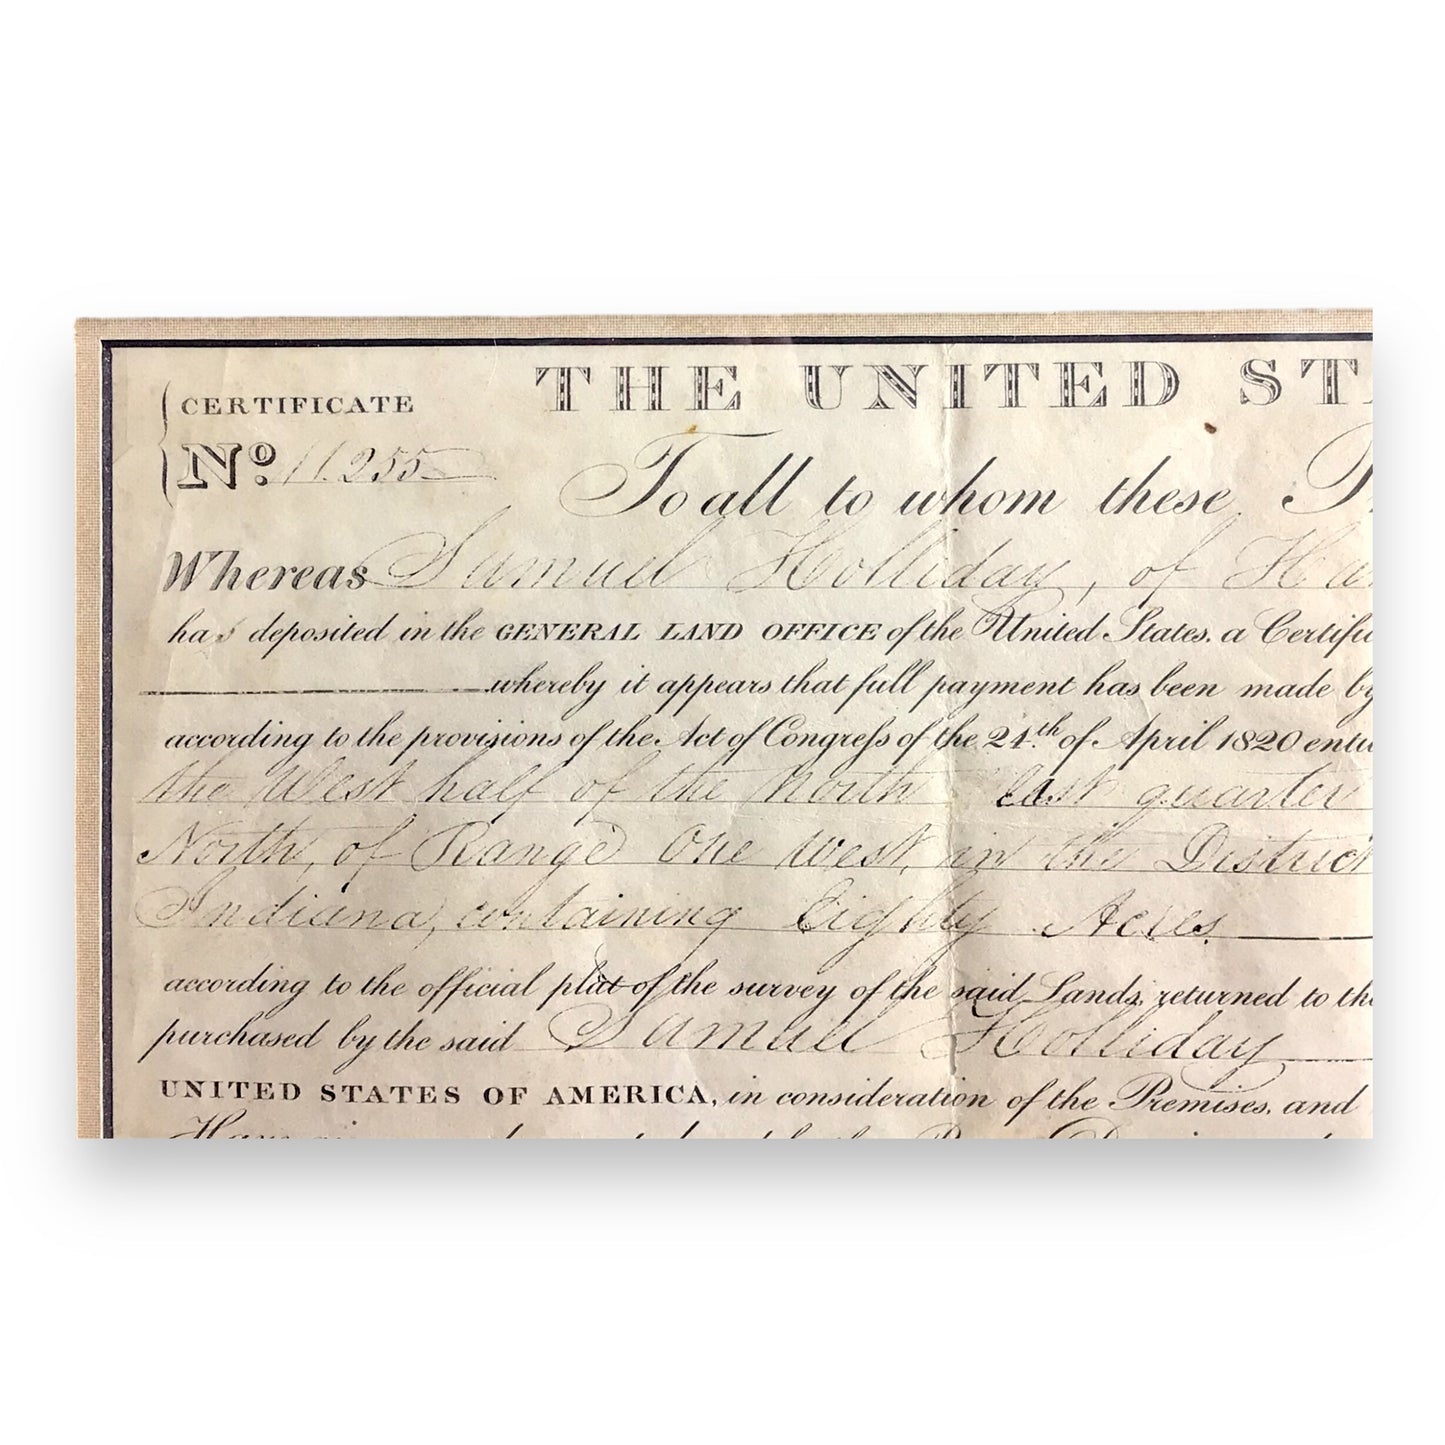 CERTIFICATE
No. 11.255
THE UNITED STA
To all to whom these
Whereas Samuel Holliday, of Ha
has deposited in the GENERAL LAND OFFICE of the United States, a Certific
whereby it appears that full payment has been made by
according to the provisions of the Act of Congreſs of the 24.th of April 1820 entit
the West half of the North East quarter
North, of Range One West, in the District
Indiana, containing Eighty Acres.
according to the official plat of the survey of the said Lands, returned to the
purchased by the said Samuel Holliday
UNITED STATES OF AMERICA, in consideration of the Premises, and